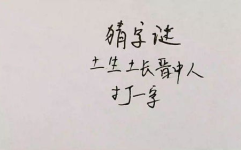 猜字谜
土生土长晋中人
打一字